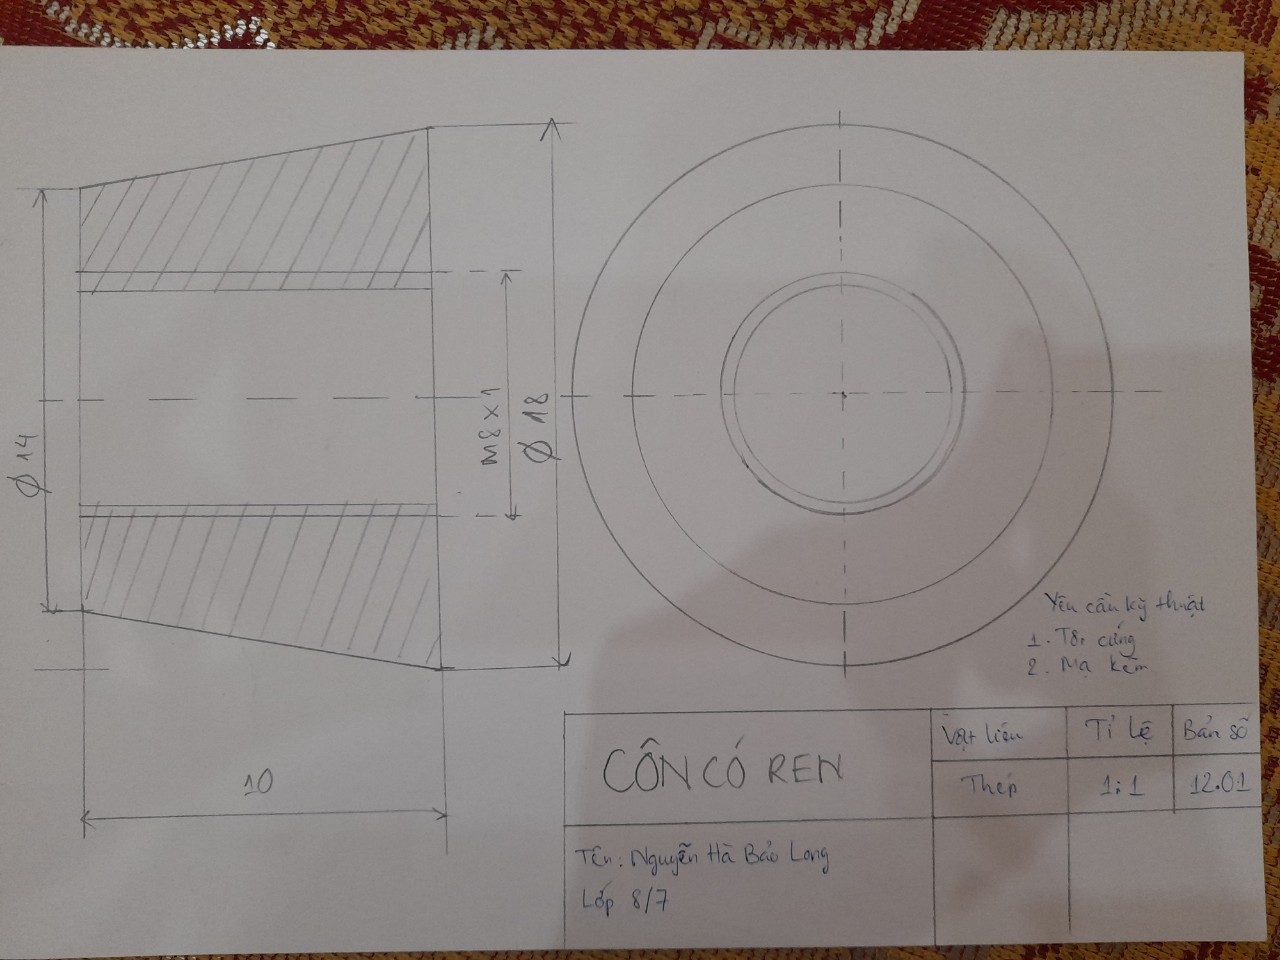 Ø 14
M8 x 1
Ø 18
10
Yêu cầu kỹ thuật
1. Tôi cứng
2. Mạ kẽm
CÔN CÓ REN
Vật liệu
Tỉ Lệ
Bản số
Thép
1:1
12.01
Tên: Nguyễn Hà Bảo Long
Lớp 8/7